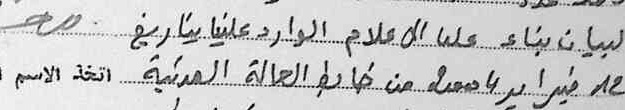 لبيان بناء على الاعلام الوارد علينا بتاريخ
12 فبراير 2004 من ضابط الحالة المدنية اتخذ الاسم